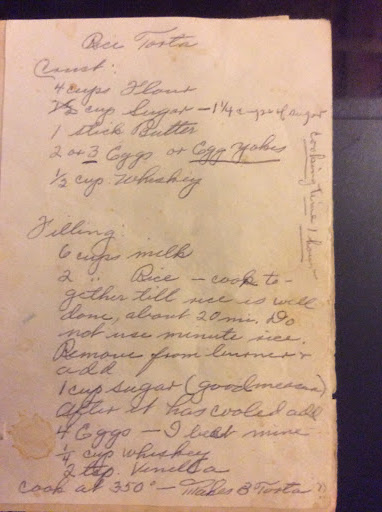 Rice Torta
Crust:
4 cups Flour
1/2 cup Sugar - 1 1/4 cups of sugar
1 stick Butter
2 or 3 Eggs or Egg Yokes
1/2 cup Whiskey
Cooking time 1 hour
Filling:
6 cups milk
2 " Rice - cook to-
gether till rice is well
done, about 20 mi. Do
not use minute rice.
Remove from burner &
add
1 cup sugar (good measure)
After it has cooled add
4 Eggs - I beat mine
1/4 cup whiskey
2 tsp. Vinilla
cook at 350° - Makes 3 Torta